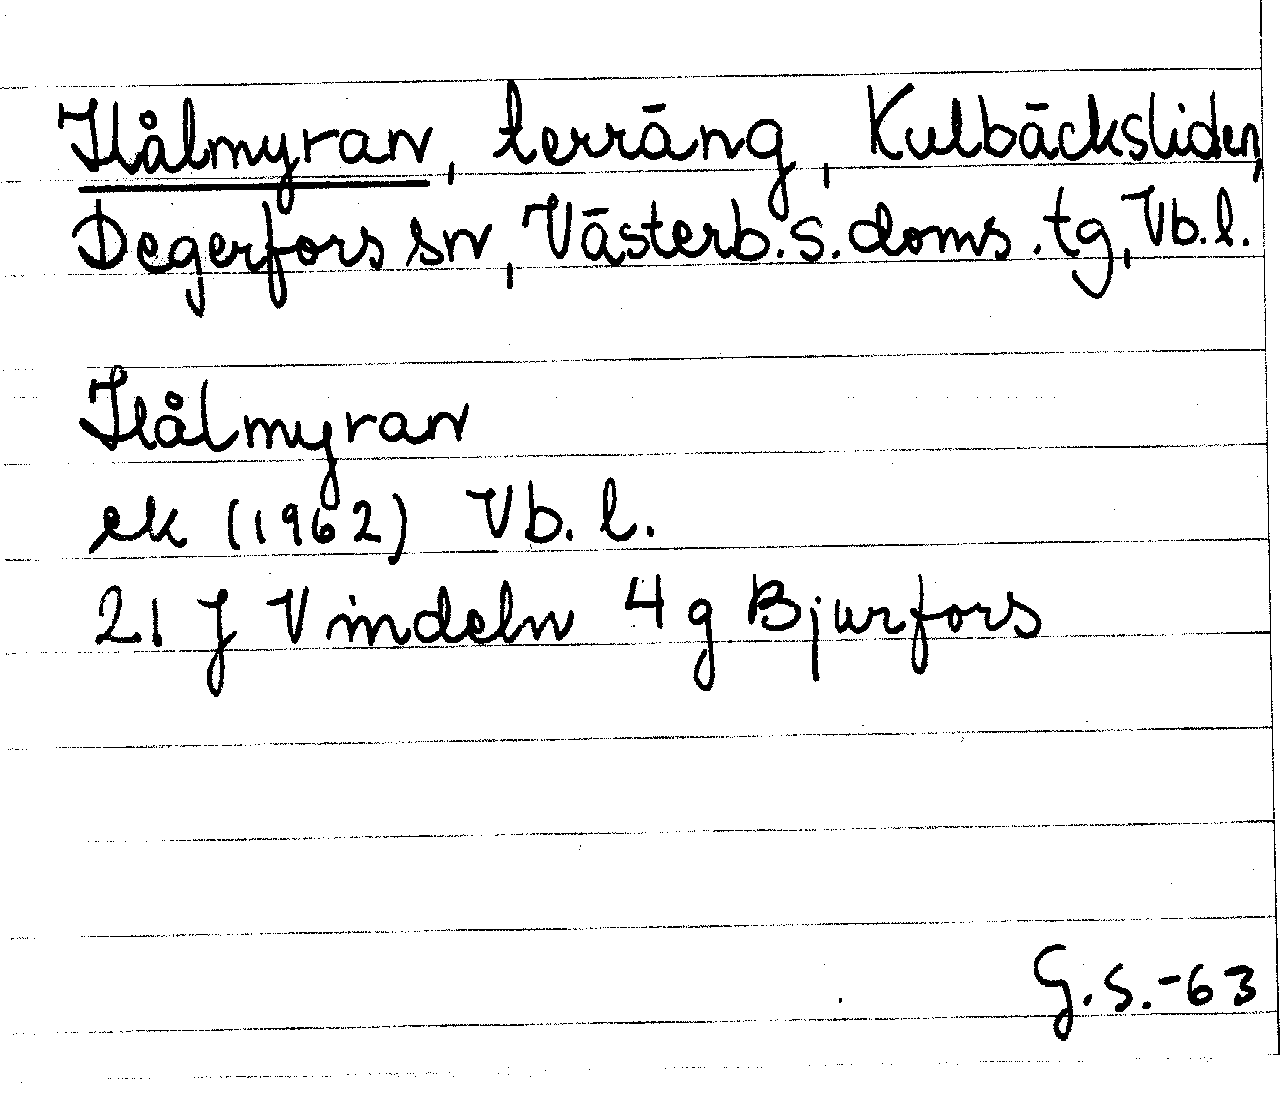 Hålmyran, terräng, Kulbäcksliden,
Degerfors sn, Västerb.s.doms.tg, Vb.l.
Hålmyran
ek (1962) Vb.l.
21 J Vindeln 4 g Bjurfors
G.S.-63